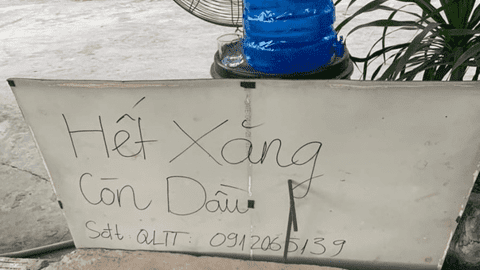 Hết Xăng
Còn Dầu
Sđt QLTT: 0912065139